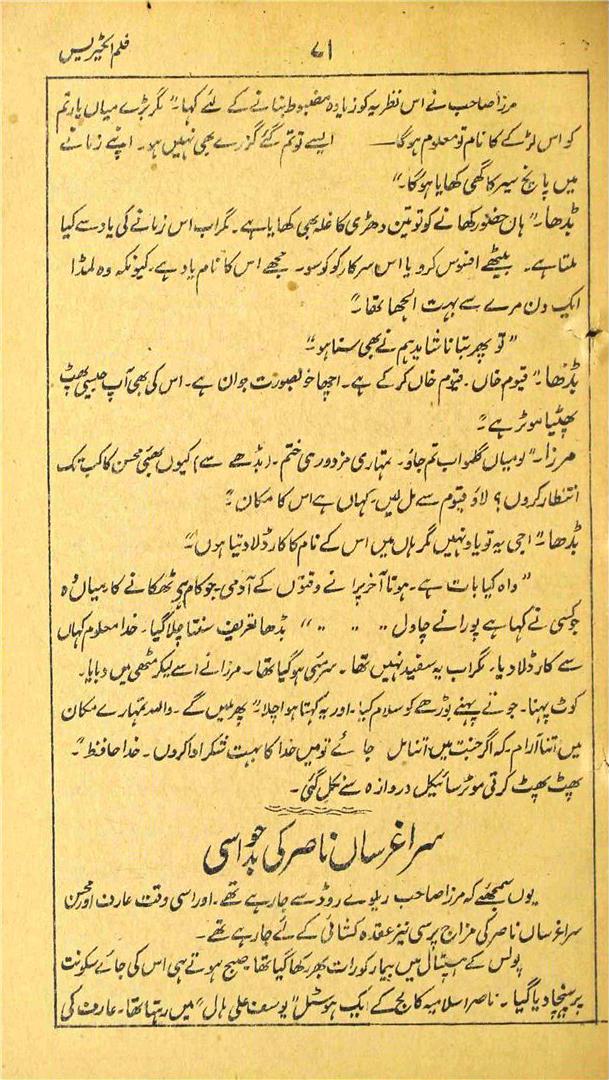 فلم ایکٹریس
۷۱
مرزا صاحب نے اس نظریہ کو زیادہ مضبوط بنانے کے لئے کہا۔" مگر بڑے میاں یار تم
کو اس لڑکے کا نام تو معلوم ہوگا— ایسے تو تم گئے گزرے بھی نہیں ہو۔ اپنے زمانے
میں پانچ سیر کا گھی کھایا ہوگا۔"
بڈھا۔" ہاں حضور کھانے کو تو تین دھڑی کا غلہ بھی کھایا ہے۔ مگر اب اس زمانے کی یاد سے کیا
ملتا ہے۔ بیٹھے افسوس کرو یا اس سرکار کو کوسو۔ مجھے اس کا نام یاد ہے۔ کیونکہ وہ لمڈا
ایک دن مرے سے بہت الجھا تھا۔"
" تو پھر بتانا شاید ہم نے بھی سنا ہو۔"
بڈھا۔" قیوم خاں۔ قیوم خاں کر کے ہے۔ اچھا خوبصورت جوان ہے۔ اس کی بھی آپ جیسی پھٹ
پھٹیا موٹر ہے۔"
مرزا۔" لو میاں گلو اب تم جاؤ۔ تمہاری مزدوری ختم۔ (بڈھے سے) کیوں بھئی محسن کا کب تک
انتظار کروں؟ لاؤ قیوم سے مل لیں۔ کہاں ہے اس کا مکان۔"
بڈھا۔" اجی یہ تو یاد نہیں مگر ہاں میں اس کے نام کا کارڈ لا دیتا ہوں۔"
" واہ کیا بات ہے۔ ہونا آخر پرانے وقتوں کے آدمی۔ جو کام ہے ٹھکانے کا۔ میاں وہ
جو کسی نے کہا ہے پورانے چاول ،، ،، ،، " بڈھا تعریف سنتا چلا گیا۔ خدا معلوم کہاں
سے کارڈ لا دیا۔ مگر اب یہ سفید نہیں تھا۔ سرمئی ہو گیا تھا۔ مرزا نے اسے لیکر مٹھی میں دبایا۔
کوٹ پہنا۔ جوتے پہنے بوڑھے کو سلام کیا۔ اور یہ کہتا ہوا چلا۔" پھر ملیں گے۔ واللہ تمہارے مکان
میں اتنا آرام۔ کہ اگر جنت میں اتنا مل جائے تو میں خدا کا بہت شکر ادا کروں۔ خدا حافظ۔"
پھٹ پھٹ کرتی موٹر سائیکل دروازہ سے نکل گئی۔
سراغرساں ناصر کی بدحواسی
یوں سمجھئے کہ مرزا صاحب ریلوے روڈ سے جا رہے تھے۔ اور اسی وقت عارف اور محسن
سراغرساں ناصر کی مزاج پرسی نیز عقدہ کشائی کے لئے جا رہے تھے۔
پولس کے ہسپتال میں بیمار کو رات بھر رکھا گیا تھا۔ صبح ہوتے ہی اس کی جائے سکونت
پر پہنچا دیا گیا۔ ناصر اسلامیہ کالج کے ایک ہوسٹل "یوسف علی ہال" میں رہتا تھا۔ عارف کی